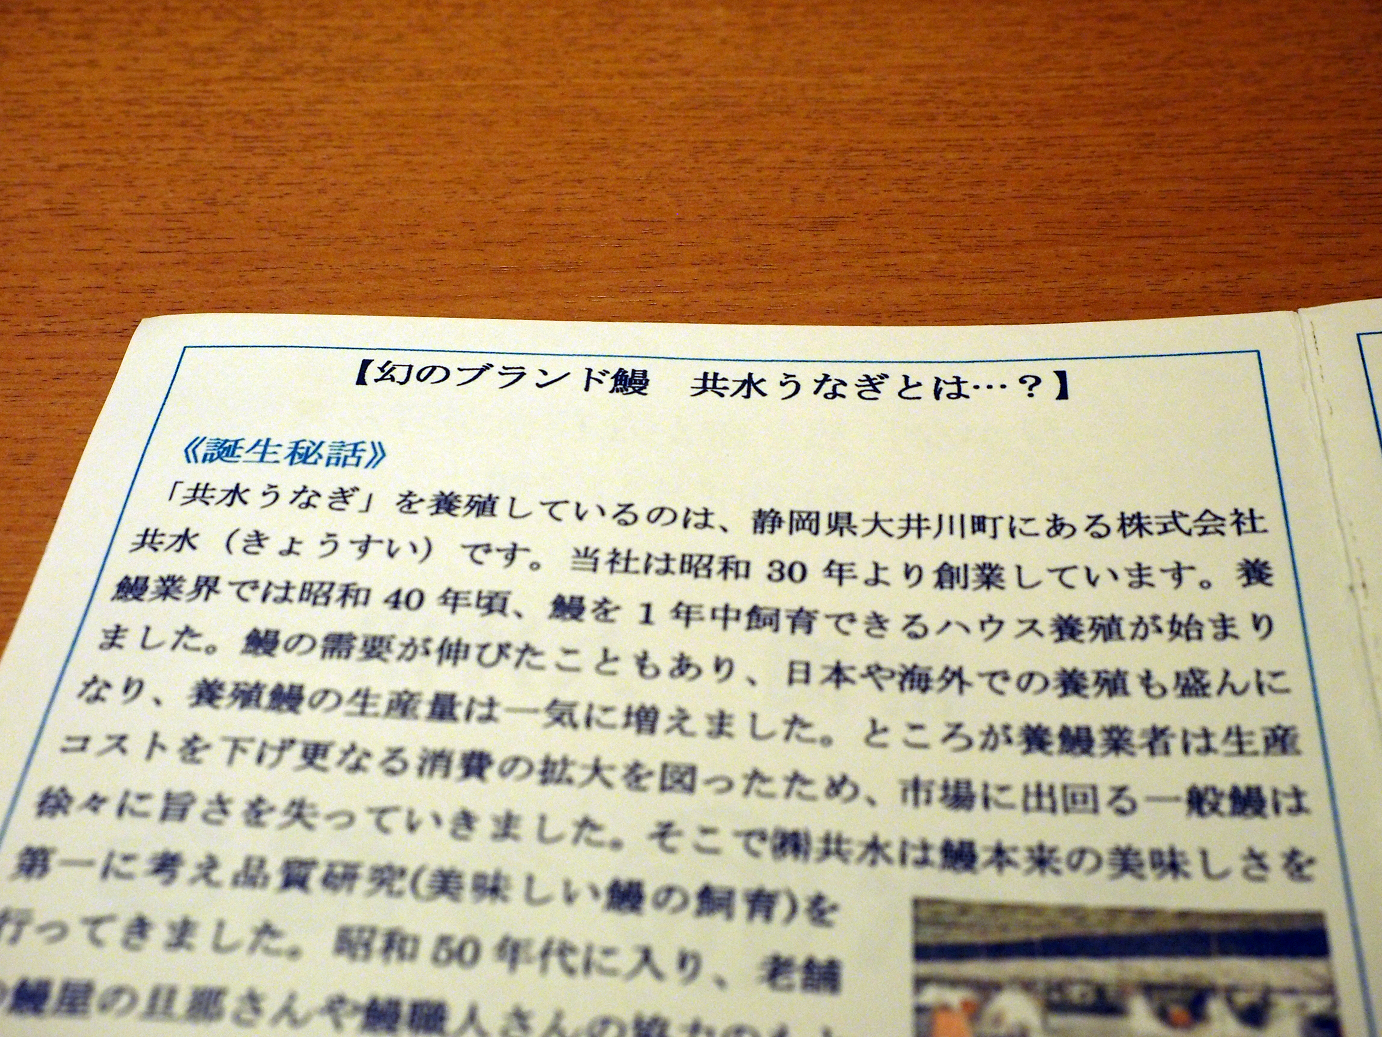 【幻のブランド鰻　共水うなぎとは…？】
《誕生秘話》
「共水うなぎ」を養殖しているのは、静岡県大井川町にある株式会社
共水（きょうすい）です。当社は昭和 30 年より創業しています。養
鰻業界では昭和 40 年頃、鰻を 1 年中飼育できるハウス養殖が始まり
ました。鰻の需要が伸びたこともあり、日本や海外での養殖も盛んに
なり、養殖鰻の生産量は一気に増えました。ところが養鰻業者は生産
コストを下げ更なる消費の拡大を図ったため、市場に出回る一般鰻は
徐々に旨さを失っていきました。そこで㈱共水は鰻本来の美味しさを
第一に考え品質研究(美味しい鰻の飼育)を
行ってきました。昭和 50 年代に入り、老舗
鰻屋の旦那さんや鰻職人さんの協力のもと